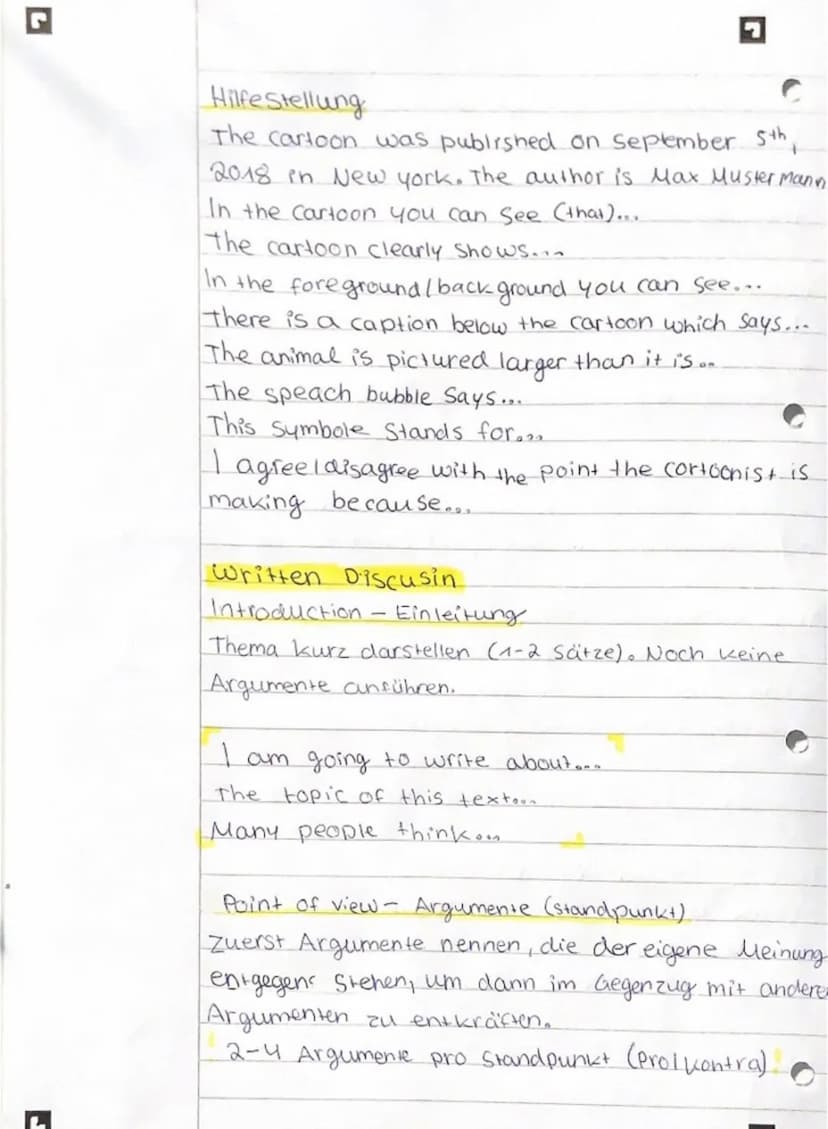 Hilfestellung
The cartoon was published on September 5th,
2018 in New York. The author is Max Mustermann
In the cartoon you can see (that)...
The cartoon clearly shows...
In the foreground/background you can see...
There is a caption below the cartoon which says...
The animal is pictured larger than it is...
The speach bubble says...
This symbole stands for...
I agree/disagree with the point the cartoonist is
making because...
Written Discusin
Introduction - Einleitung
Thema kurz darstellen (1-2 Sätze). Noch keine
Argumente anführen.
I am going to write about...
The topic of this text...
Many people think...
Point of view - Argumente (Standpunkt)
Zuerst Argumente nennen, die der eigene Meinung
entgegens stehen, um dann im Gegenzug mit andere
Argumenten zu entkräften.
! 2-4 Argumente pro Standpunkt (Pro/Kontra) !